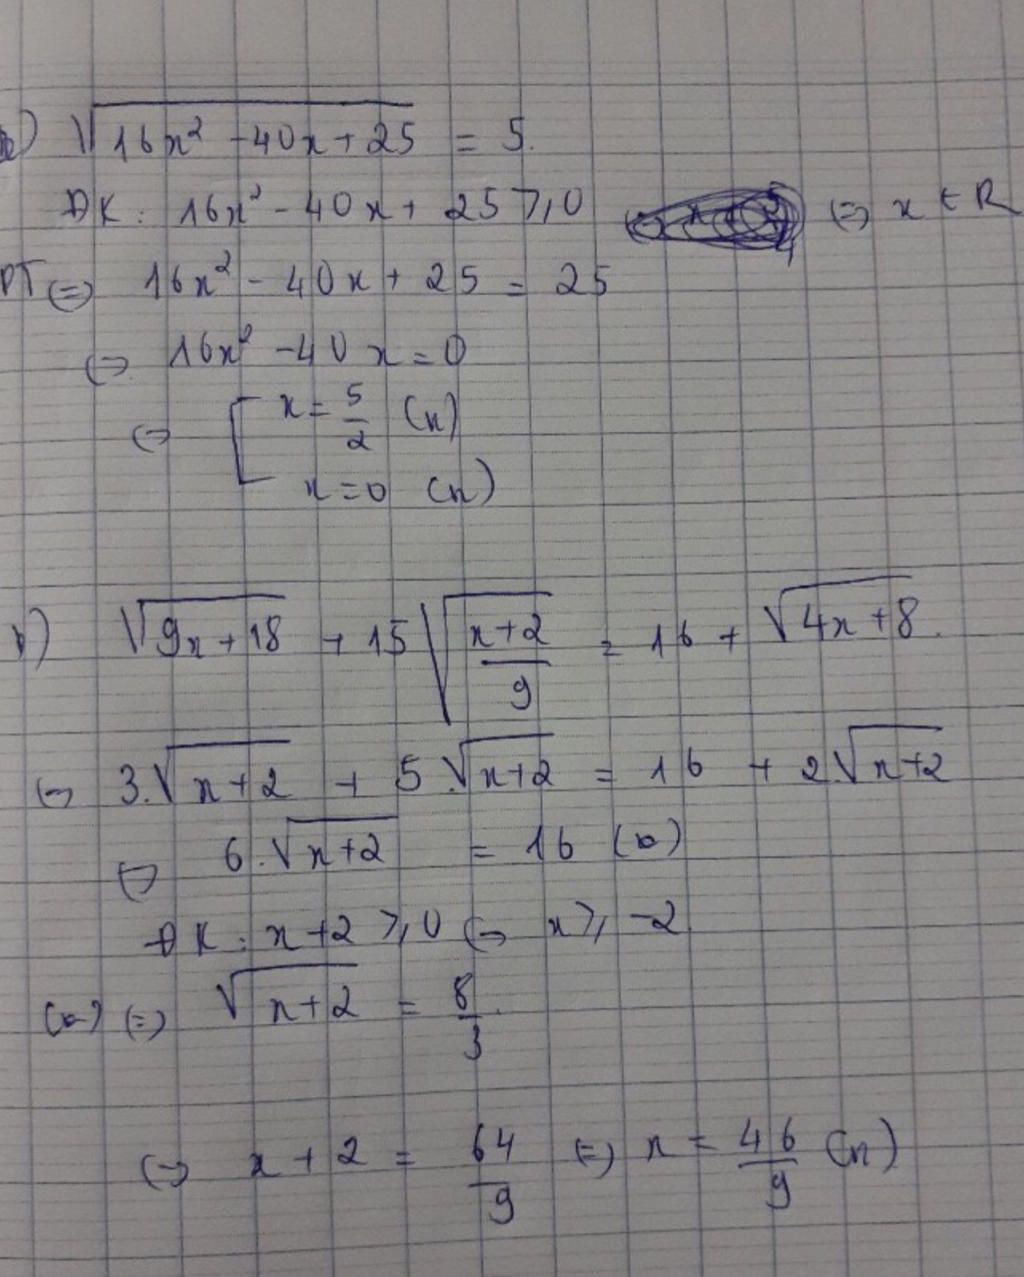 a) √(16x² - 40x + 25) = 5.
ĐK: 16x² - 40x + 25 ≥ 0 ⇔ x ∈ R
PT ⇔ 16x² - 40x + 25 = 25
⇔ 16x² - 40x = 0
⇔ [ x = 5/2 (n)
x = 0 (n)
b) √(9x + 18) + 15√((x+2)/9) = 16 + √(4x + 8).
⇔ 3.√(x+2) + 5.√(x+2) = 16 + 2√(x+2)
⇔ 6.√(x+2) = 16 (a)
ĐK: x+2 ≥ 0 ⇔ x ≥ -2
(a) ⇔ √(x+2) = 8/3.
⇔ x + 2 = 64/9 ⇔ x = 46/9 (n)